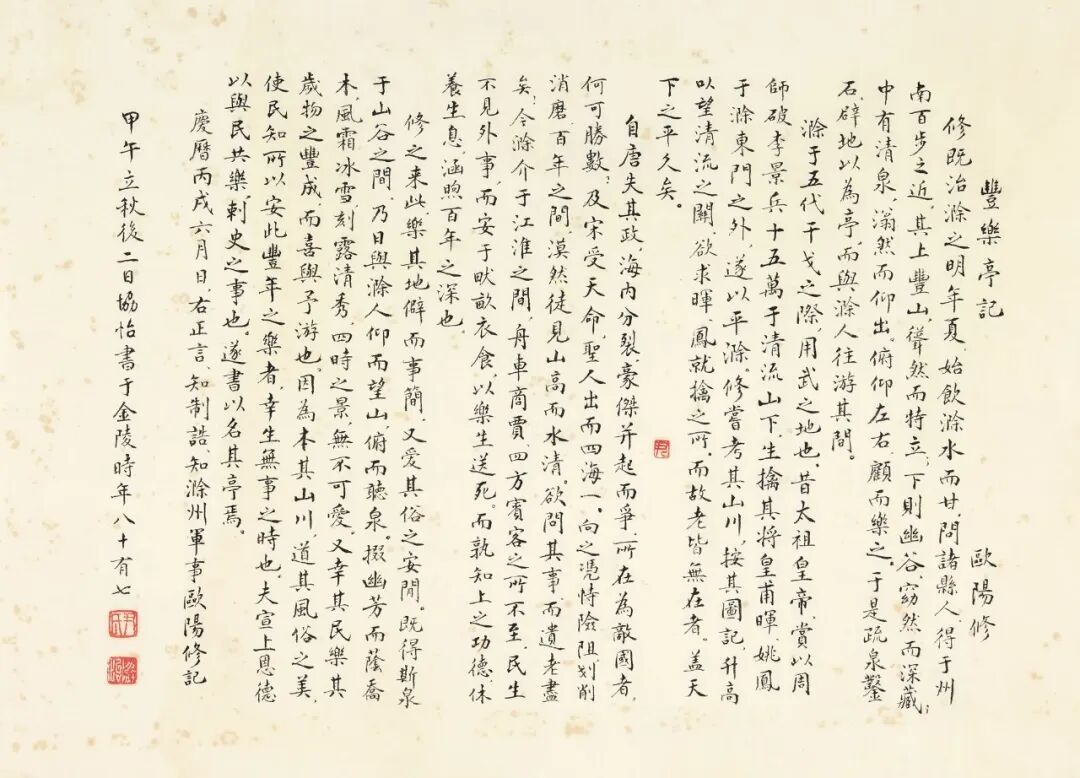 豐樂亭記 歐陽修
修既治滁之明年夏,始飲滁水而甘,問諸縣人,得于州
南百步之近。其上豐山,聳然而特立;下則幽谷,窈然而深藏;
中有清泉,滃然而仰出。俯仰左右,顧而樂之。于是疏泉鑿
石,辟地以為亭,而與滁人往游其間。
滁于五代干戈之際,用武之地也。昔太祖皇帝,嘗以周
師破李景兵十五萬于清流山下,生擒其將皇甫暉、姚鳳
于滁東門之外,遂以平滁。修嘗考其山川,按其圖記,升高
以望清流之關,欲求暉、鳳就擒之所,而故老皆無在者。蓋天
下之平久矣。
自唐失其政,海内分裂,豪傑并起而爭,所在為敵國者,
何可勝數?及宋受天命,聖人出而四海一。向之憑恃險阻,剗削
消磨,百年之間,漠然徒見山高而水清。欲問其事,而遺老盡
矣!今滁介于江淮之間,舟車商賈、四方賓客之所不至。民生
不見外事,而安于畎畝衣食,以樂生送死。而孰知上之功德,休
養生息,涵煦百年之深也。
修之來此,樂其地僻而事簡,又愛其俗之安閒。既得斯泉
于山谷之間,乃日與滁人仰而望山,俯而聽泉。掇幽芳而蔭喬
木,風霜冰雪,刻露清秀,四時之景,無不可愛。又幸其民樂其
歲物之豐成,而喜與予游也。因為本其山川,道其風俗之美,
使民知所以安此豐年之樂者,幸生無事之時也。夫宣上恩德,
以與民共樂,刺史之事也。遂書以名其亭焉。
慶曆丙戌六月日,右正言、知制誥、知滁州軍事歐陽修記
甲午立秋後二日協怡書于金陵時年八十有七